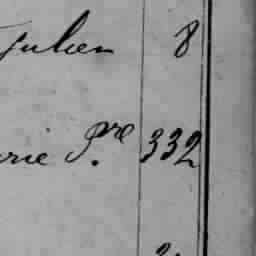 Julien 8
rie Pre 332